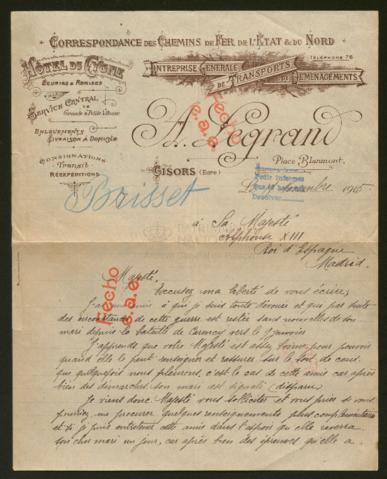 CORRESPONDANCE DES CHEMINS DE FER DE L'ETAT & DU NORD
TÉLÉPHONE 76
HÔTEL DU CYGNE
ECURIES & REMISES
ENTREPRISE GÉNÉRALE
DE TRANSPORTS
DÉMÉNAGEMENTS
SERVICE CENTRAL
DE
Grande & Petite Vitesse
A. Legrand
ENLÈVEMENTS
LIVRAISON A DOMICILE
Place Blanmont
CONSIGNATIONS
TRANSIT
RÉEXPÉDITIONS
GISORS (Eure)
Hecho
s.a.e.
Brisset
1915
à Sa Majesté
Alphonse XIII
Roi d'Espagne
Madrid.
Majesté,
Excusez ma liberté de vous écrire,
J'ai une amie à qui je suis toute dévouée et qui par suite
des circonstances de cette guerre est restée sans nouvelles de son
mari depuis la bataille de Carency vers le 9 janvier
J'apprends que votre Majesté est assez bonne pour pouvoir
quand elle le peut renseigner et rassurer sur le sort de ceux
que quelquefois nous pleurons, c'est le cas de cette amie car après
bien des démarches son mari est signalé (disparu)
Hecho
s.a.e.
Je viens donc Majesté vous solliciter et vous prier si vous
pouviez me procurer quelques renseignements plus complémentaires
et si je puis entretenir cette amie dans l'espoir qu'elle reverra
son cher mari un jour, car après bien des épreuves qu'elle a